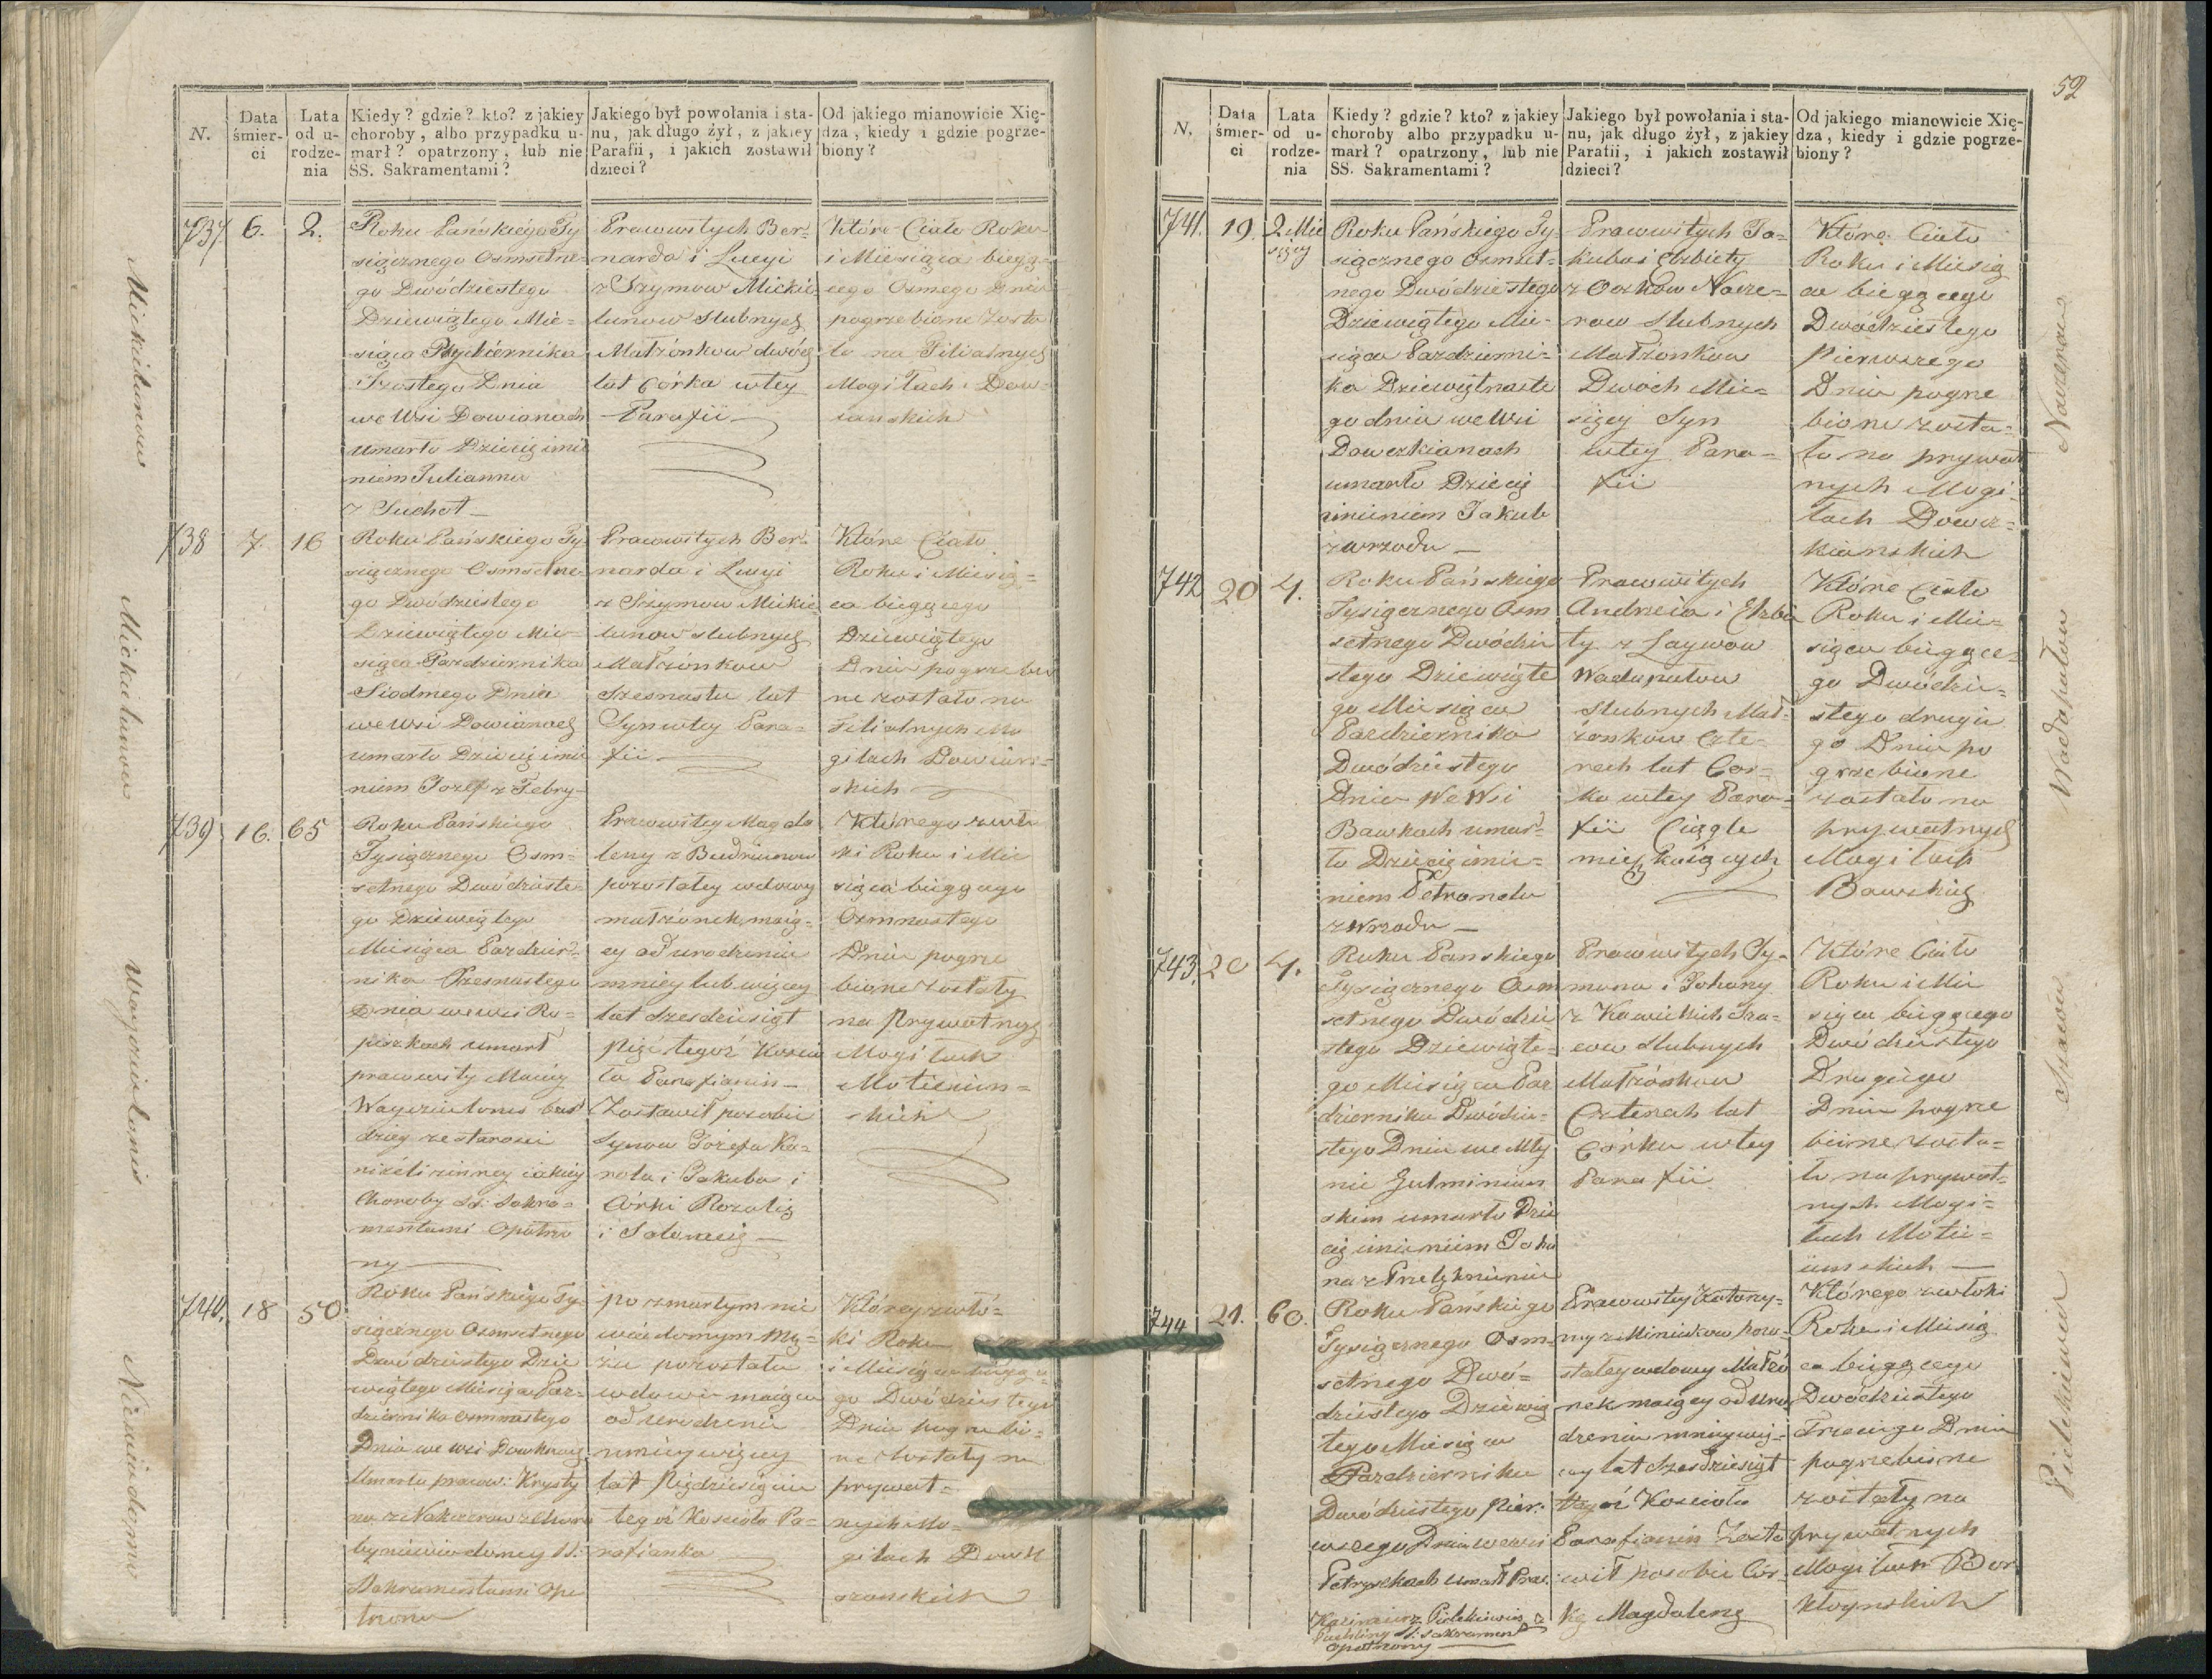 N.
Data śmier-ci
Lata od u-rodze-nia
Kiedy? gdzie? kto? z jakiey
choroby, albo przypadku u-
marł? opatrzony, lub nie
SS. Sakramentami?
Jakiego był powołania i sta-
nu, jak długo żył, z jakiey
Parafii, i jakich zostawił
dzieci?
Od jakiego mianowicie Xię-
dza, kiedy i gdzie pogrze-
biony?
Mickielunow
737 6. 2.
Roku Pańskiego Ty
siącznego Osmsetne-
go Dwódziestego
Dziewiątego Mie-
siąca Października
Szostego Dnia
we Wsi Dowianach
umarło Dziecię imie
niem Julianna
z Suchot
Pracowitych Ber-
narda i Lucyi
z Szymow Mickie
lunow slubnych
Małżonkow dwóch
lat Córka w tey
Parafii
Które Ciało Roku
i Miesiąca biegą-
cego Osmego Dnia
pogrzebione zosta
ło na Filialnych
Mogiłach Dow-
ianskich
Mickielunow
738 7. 16
Roku Pańskiego Ty
siącznego Osmsetne-
go Dwódziestego
Dziewiątego Mie-
siąca Października
Siodmego Dnia
we Wsi Dowianach
umarło Dziecię imie
niem Jozef z Febry
Pracowitych Ber-
narda i Lucyi
z Szymow Mickie
lunow slubnych
Małżonkow
Szesnastu lat
Syn w tey Para-
fii
Które Ciało
Roku i Miesią-
ca biegącego
Dziewiątego
Dnia pogrzebio
ne zostało na
Filialnych Mo
giłach Dowians-
skich
739 16. 65
Roku Pańskiego
Tysiącznego Osm-
setnego Dwódzieste-
go Dziewiątego
Miesiąca Paździer-
nika Szesnastego
Dnia we wsi Ro-
piszkach umarł
pracowity Maciey
dziey ze starosci
niżeli z inney iakiey
Choroby SS. Sakra-
mentami Opatrzo
ny
Pracowitey Magda
leny z Budniunow
pozostałey wdowy
małżonek, maią-
cy od urodzenia
mniey lub więcey
lat szesdziesiąt
pięć tegoż Koscio
ła Parafianin
Zostawił po sobie
Synow Jozefa Ka-
rola i Jakuba i
Córki Rozalią
i Salomeią
Którego zwło
ki Roku i Mie
siąca biegącego
Osmnastego
Dnia pogrze
bione zostały
na Prywatnych
Mogiłach
skich
Niewiadomo
740. 18 50
Roku Pańskiego Ty-
siącznego Osmsetnego
Dwódziestego Dzie
wiątego Miesiąca Paź-
dziernika osmnastego
Umarła pracow: Krysty
na z Nakurow z Choro
by niewiadomey SS.
Sakramentami Opa
trzona
po zmarłym nie
wiadomym mę-
żu pozostała
wdowa maiąca
od urodzenia
mniey więcey
lat piędziesiąt
tegoż Koscioła Pa-
rafianka
Którey zwło-
ki Roku
i Miesiąca biegące-
go Dwódziestego
Dnia pogrzebio-
ne zostały na
prywat-
nych Mo-
giłach
59
N.
Data śmier-ci
Lata od u-rodze-nia
Kiedy? gdzie? kto? z jakiey
choroby albo przypadku u-
marł? opatrzony, lub nie
SS. Sakramentami?
Jakiego był powołania i sta-
nu, jak długo żył, z jakiey
Parafii, i jakich zostawił
dzieci?
Od jakiego mianowicie Xię-
dza, kiedy i gdzie pogrze-
biony?
741. 19. 2 Mie
sięcy
Roku Pańskiego Ty-
siącznego Osmset-
nego Dwódziestego
Dziewiątego Mie-
siąca Październi-
ka Dziewiętnaste
go dnia we Wsi
Dowczkianach
umarło Dziecię
imieniem Jakub
z wrzodu
Pracowitych Ja-
kuba i Elzbiety
row Slubnych
Małżonkow
Dwóch Mie-
sięcy Syn
w tey Para-
fii
Które Ciało
Roku i Miesią
ca biegącego
Dwódziestego
Pierwszego
Dnia pogrze
bione zosta-
ło na prywat
nych Mogi-
łach Dowcz-
kianskich
Wadapałow
742 20 4.
Roku Pańskiego
Tysiącznego Osm
setnego Dwódzie
stego Dziewiąte
go Miesiąca
Października
Dwódziestego
Dnia We Wsi
Bawkach umar-
ło Dziecię imie-
niem Petronela
z wrzodu
Pracowitych
Andrzeia i Elzbie
ty z Laywow
Wadapałow
Slubnych Mał-
żonkow Czte-
rech lat Cor-
ka w tey Para-
fii Ciągle
mięszkaiących
Które Ciało
Roku i Mie-
siąca biegące-
go Dwódzie-
stego drugie
go Dnia po
grzebione
zostało na
prywatnych
Mogiłach
Bawskich
743. 20 4.
Roku Panskiego
Tysiącznego Osm
setnego Dwódzie
stego Dziewiąte-
go Miesiąca Paź
dziernika Dwódzie-
stego Dnia we Mły
nie Gulminiun
skim umarło Dzie
cię imieniem Joha
na z Przelęknienia
Pracowitych Sy-
mona i Johany
Slubnych
Małżonkow
Czterech lat
Córka w tey
Parafii
Które Ciało
Roku i Mie
siąca biegącego
Dwódziestego
Drugiego
Dnia pogrze
bione zosta-
ło na prywat-
nych Mogi-
łach
Pielekiewicz
744 21. 60.
Roku Pańskiego
Tysiącznego Osm-
setnego Dwó-
dziestego Dziewią
tego Miesiąca
Października
Dwódziestego Pier-
wszego Dnia we wsi
Petryszkach Umarł Prac:
Kazimierz Pielekiewicz z
Puchliny SS. Sakramen
opatrzony
stałey wdowy Małżo
nek maiący od uro
dzenia mniey wię-
cey lat szesdziesiąt
tegoż Koscioła
Parafianin Zosta
wił po sobie Cór-
kę Magdalenę
Którego zwłoki
Roku i Miesią
ca biegącego
Dwódziestego
Trzeciego Dnia
pogrzebione
zostały na
prywatnych
Mogiłach